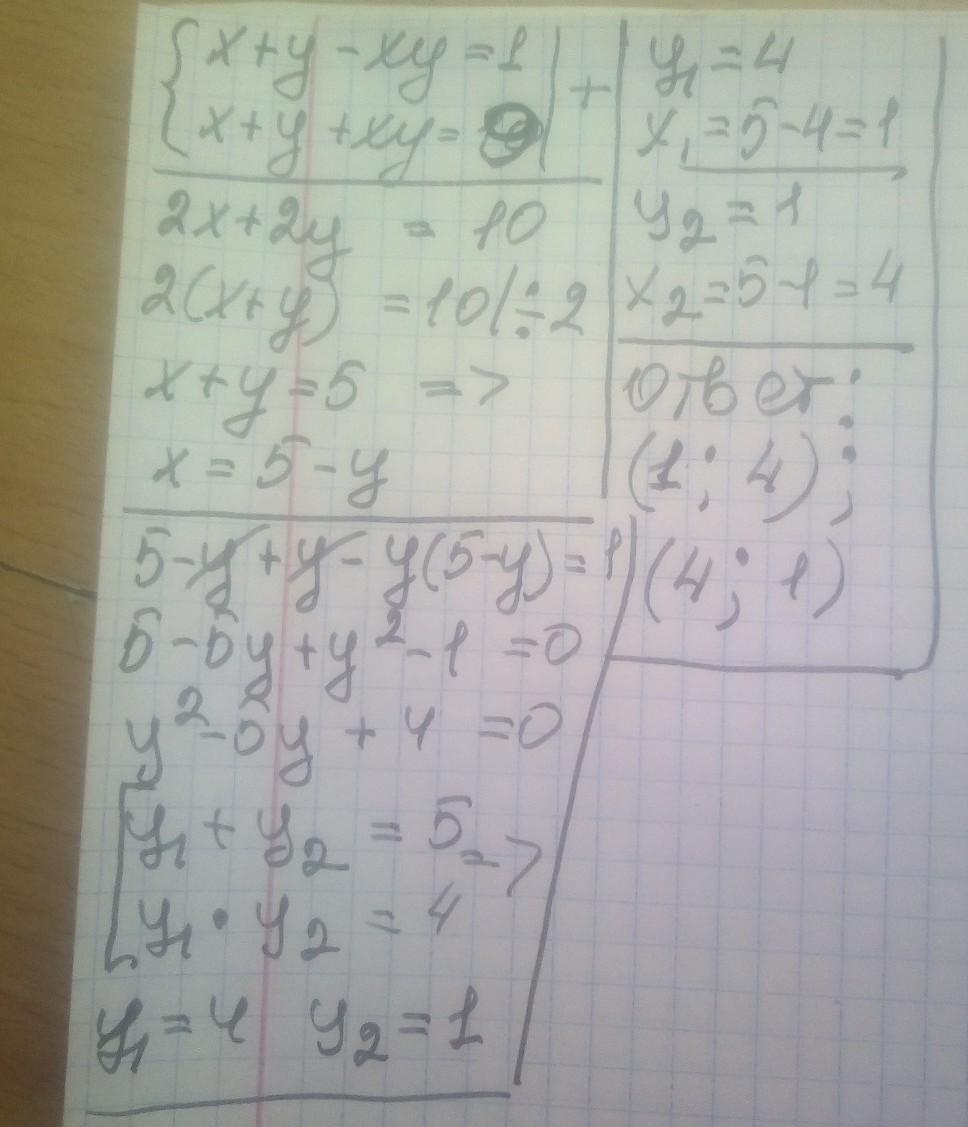 x+y-xy=1
x+y+xy=9
+
2x+2y = 10
2(x+y) =10/÷2
x+y=5 =>
x=5-y
5-y+y-y(5-y)=1
5-5y+y²-1=0
y²-5y+4=0
y₁+y₂=5 =>
y₁·y₂=4
y₁=4 y₂=1
y₁=4
x₁=5-4=1
y₂=1
x₂=5-1=4
Ответ:
(1; 4);
(4; 1)